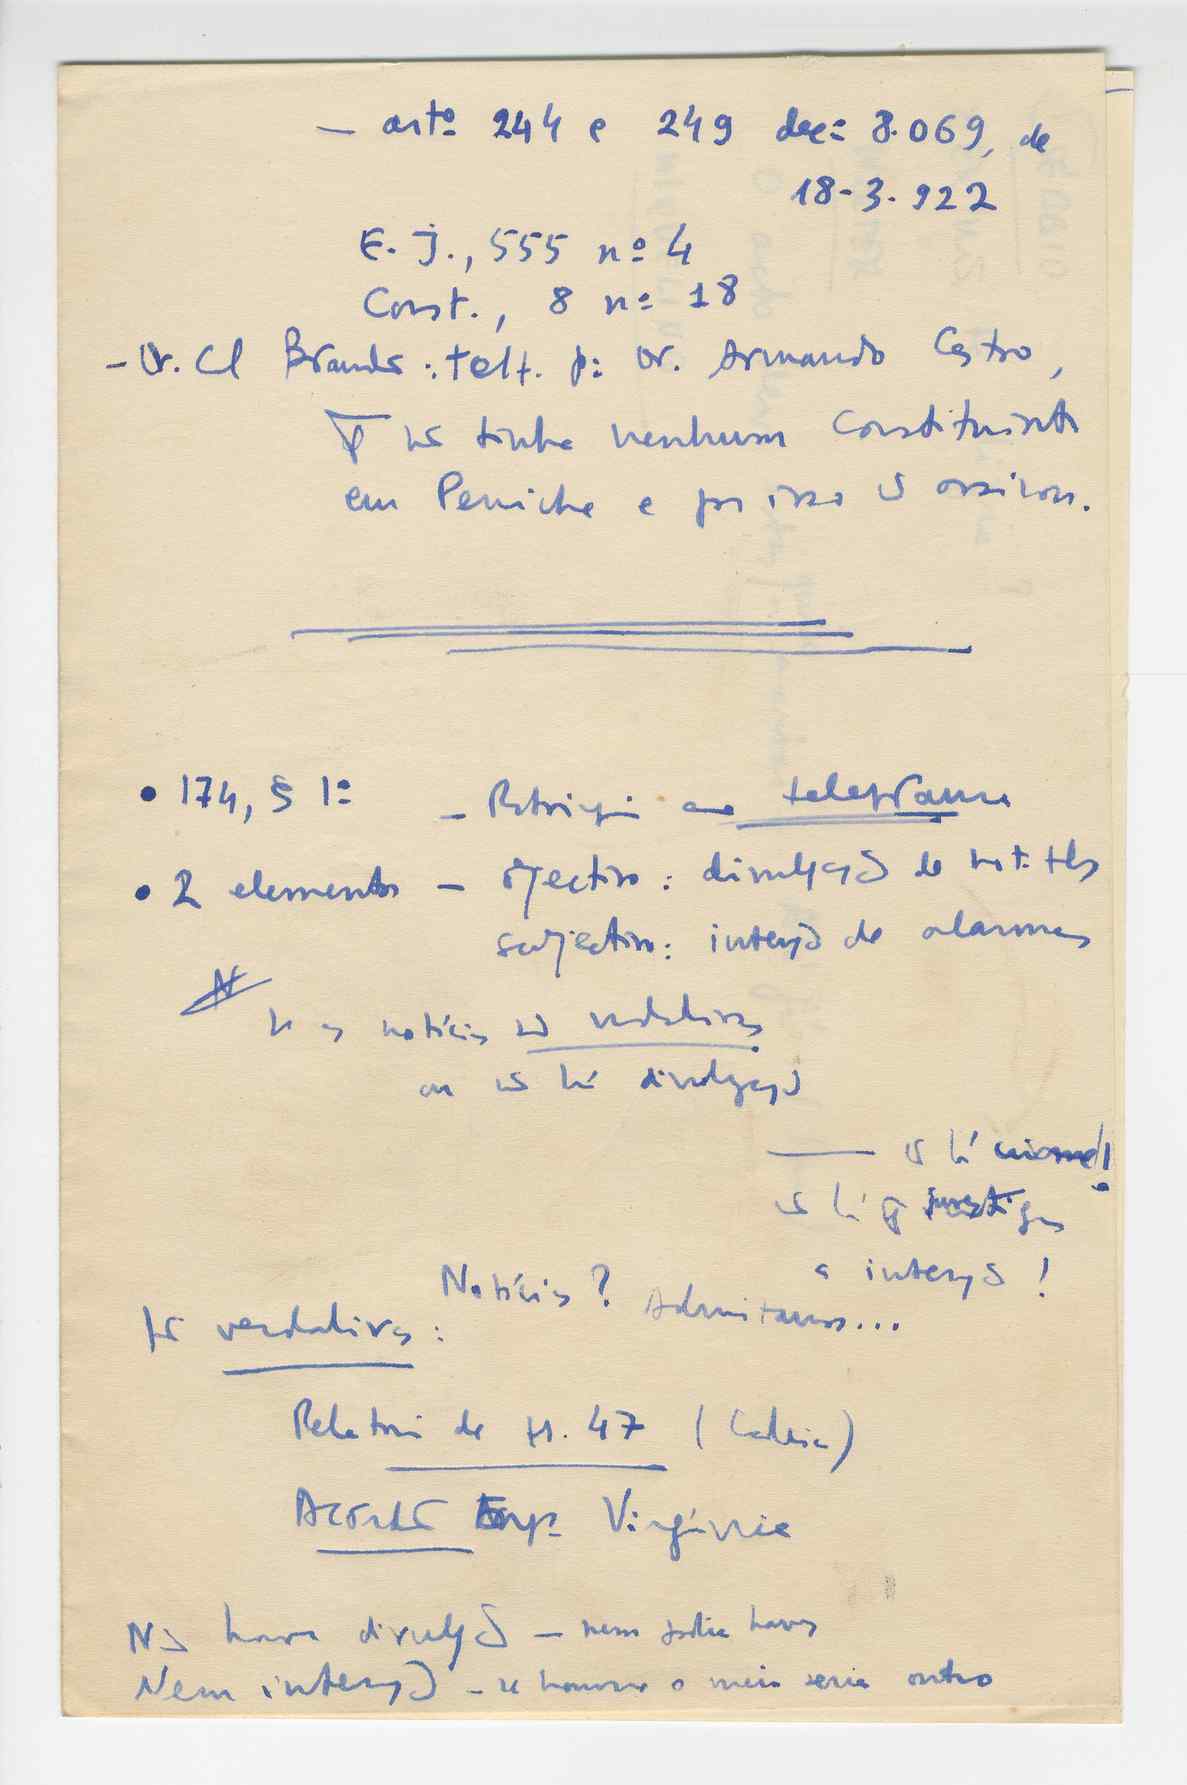 — artº 244 e 249 decº 8.069, de
18-3.922
E. J., 555 nº 4
Const., 8 nº 18
- Dr. Cl Brandº: telf. pº Dr. Armando Castro,
tinha nenhum Constituinte
em Peniche e por isso assinou.
• 174, § 1º — ao telegrama
• 2 elementos — objectivo: divulgação de not. tds
subjectivo: intenção de alarmar
Se as notícias são verdadeiras
ou há divulgação
— há crime!
há
a intenção!
Notícias? Admitamos...
São verdadeiras:
Relatório de fl. 47 (Cadeia)
Acórdão Virgínia
Não houve divulgação — nem podia haver
Nem intenção — se houvesse o meio seria outro